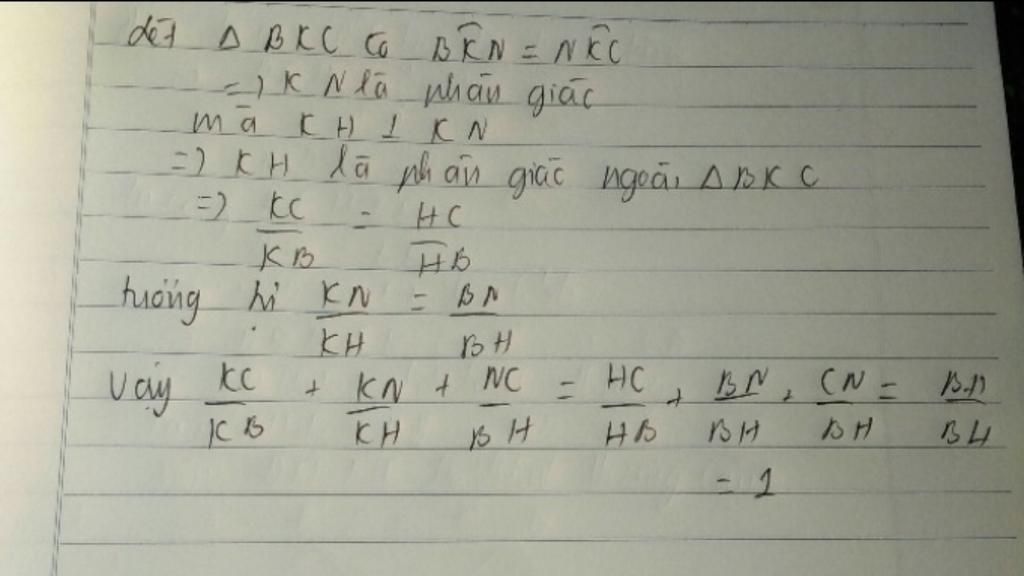 Xét Δ BKC có BK̂N = NK̂C
=) KN là phân giác
mà KH ⊥ KN
=) KH là phân giác ngoài ΔBKC
=) KC/KB = HC/HB
tương tự KN/KH = BN/BH
Vậy KC/KB + KN/KH + NC/BH = HC/HB + BN/BH + CN/BH = BH/BH
= 1